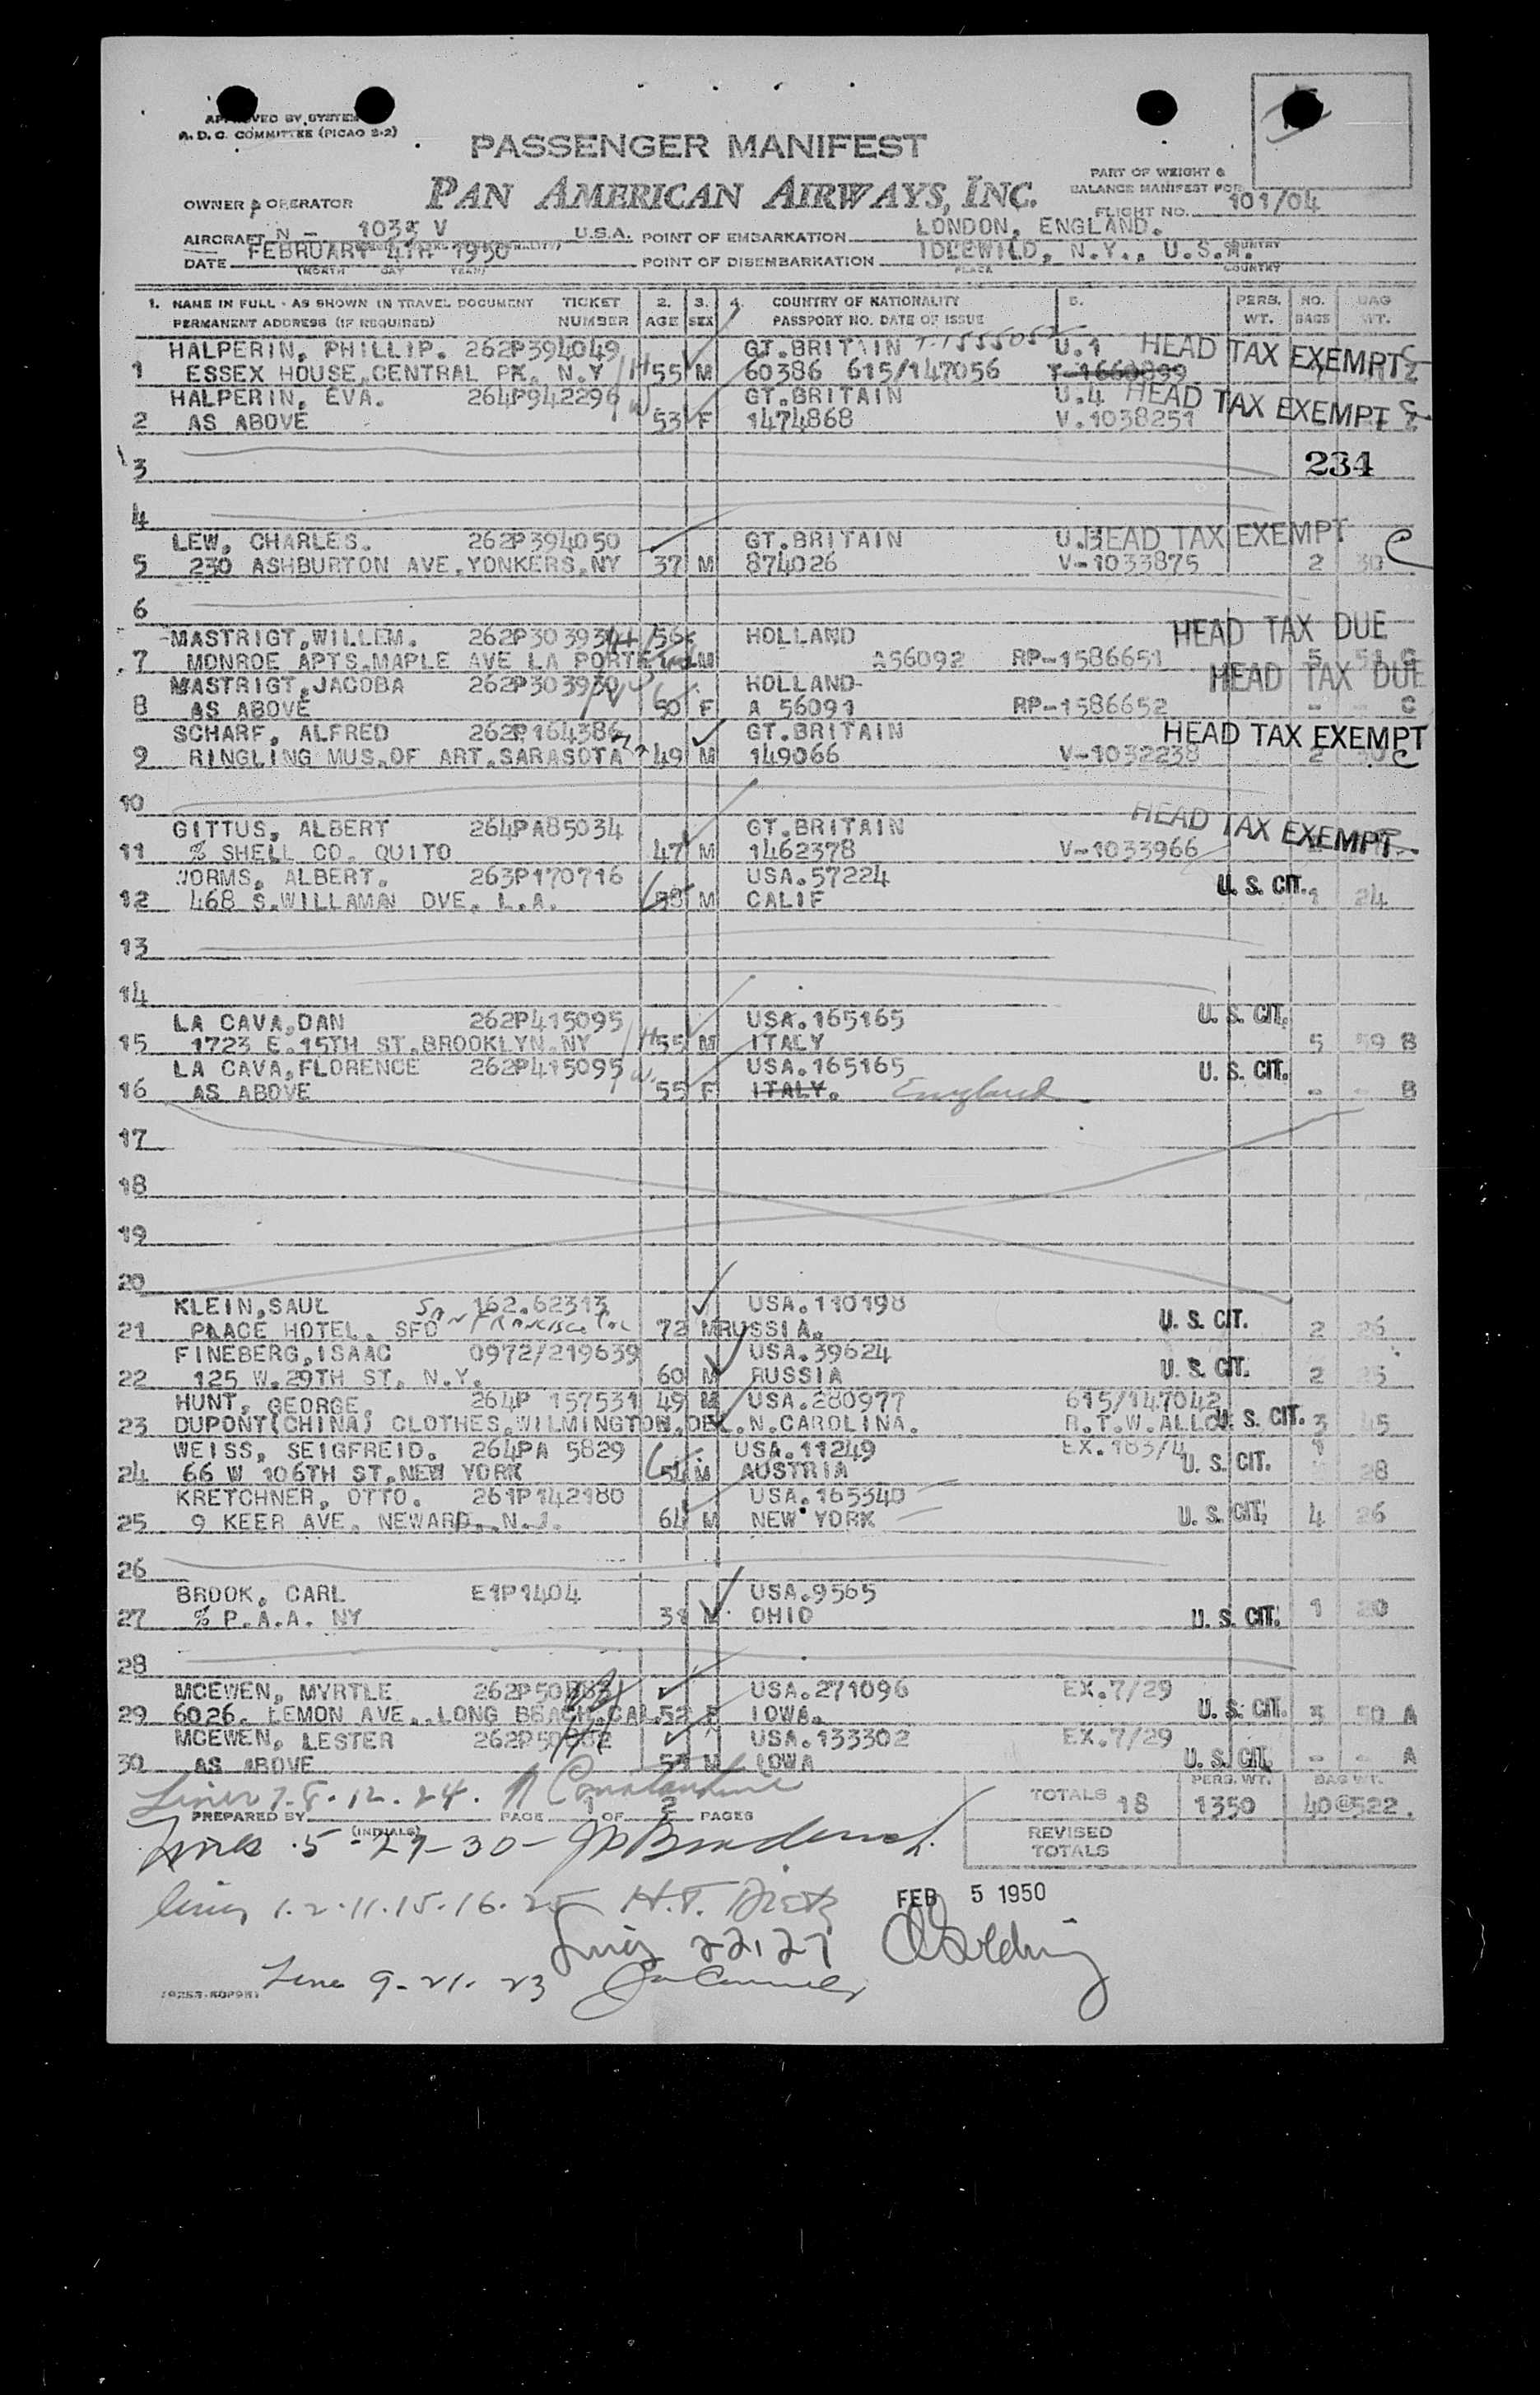 APPROVED BY SYSTEM
A. D. C. COMMITTEE (PICAO 2-2)
PASSENGER MANIFEST
PAN AMERICAN AIRWAYS, INC.
PART OF WEIGHT &
BALANCE MANIFEST FOR
FLIGHT NO. 101/04
OWNER OPERATOR
AIRCRAFT N - 1035 V U.S.A. POINT OF EMBARKATION LONDON, ENGLAND. COUNTRY
DATE FEBRUARY 4TH 1950 POINT OF DISEMBARKATION IDLEWILD, N.Y., U.S.A.
(MONTH DAY YEAR) PLACE COUNTRY
1. NAME IN FULL - AS SHOWN IN TRAVEL DOCUMENT TICKET 2. 3. 4. COUNTRY OF NATIONALITY 5. PERS. NO. BAG
PERMANENT ADDRESS (IF REQUIRED) NUMBER AGE SEX PASSPORT NO. DATE OF ISSUE WT. BAGS WT.
HALPERIN, PHILLIP. 262P394049 GT.BRITAIN U.1 HEAD TAX EXEMPT
1 ESSEX HOUSE,CENTRAL PK. N.Y H 55 M 60386 615/147056
HALPERIN, EVA. 264P942296 GT.BRITAIN U.4 HEAD TAX EXEMPT
2 AS ABOVE W 53 F 1474868 V.1038251
3 234
4
LEW, CHARLES. 262P394050 GT.BRITAIN HEAD TAX EXEMPT C
5 230 ASHBURTON AVE.YONKERS.NY 37 M 874026 V-1033875 2 30
6
MASTRIGT,WILLEM. 262P303930 H 56 HOLLAND HEAD TAX DUE
7 MONROE APTS.MAPLE AVE LA PORTE M A56092 RP-1586651 5 51 C
MASTRIGT,JACOBA 262P303930 W HOLLAND HEAD TAX DUE
8 AS ABOVE 50 F A 56091 RP-1586652 - - C
SCHARF, ALFRED 262P164386 GT.BRITAIN HEAD TAX EXEMPT
9 RINGLING MUS.OF ART.SARASOTA 49 M 149066 V-1032238 2 C
10
GITTUS, ALBERT 264PA85034 GT.BRITAIN HEAD TAX EXEMPT
11 % SHELL CO. QUITO 47 M 1462378 V-1033966
WORMS, ALBERT. 263P170716 USA.57224 U. S. CIT.
12 468 S.WILLAMAN DVE. L.A. 58 M CALIF 1 24
13
14
LA CAVA,DAN 262P415095 USA.165165 U. S. CIT.
15 1723 E.15TH ST.BROOKLYN.NY H 55 M ITALY 5 59 B
LA CAVA,FLORENCE 262P415095 W. USA.165165 U. S. CIT.
16 AS ABOVE 55 F ITALY. England - - B
17
18
19
20
KLEIN,SAUL 162.62313 USA.110198
21 PLACE HOTEL. SFO San Francisco Cal 72 M RUSSIA. U. S. CIT. 2 26
FINEBERG,ISAAC 0972/219639 USA.39624
22 125 W.29TH ST. N.Y. 60 M RUSSIA U. S. CIT. 2 25
HUNT, GEORGE. 264P 157531 49 M USA.280977 615/147042
23 DUPONT(CHINA) CLOTHES.WILMINGTON.DEL.N.CAROLINA. R.T.W.ALLO U. S. CIT. 3 45
WEISS, SEIGFREID. 264PA 5829 USA.11249 EX.183/4 1
24 66 W 106TH ST.NEW YORK 54 M AUSTRIA U. S. CIT. 28
KRETCHNER, OTTO. 261P142180 USA.165340
25 9 KEER AVE. NEWARD..N.J. 64 M NEW YORK U. S. CIT. 4 26
26
BROOK, CARL E1P1404 USA.9565
27 % P.A.A. NY 31 M OHIO U. S. CIT. 1 20
28
MCEWEN, MYRTLE USA.271096 EX.7/29
29 6026. LEMON AVE..LONG BEACH.CAL. 52 F IOWA. U. S. CIT. 3 50 A
MCEWEN, LESTER USA.133302 EX.7/29
30 AS ABOVE M IOWA U. S. CIT. - - A
Lines 7-8-12-24. Constantine
PREPARED BY (INITIALS) PAGE 1 OF 2 PAGES
TOTALS 18 PERS. WT. 1350 BAG WT. 40@522.
REVISED
TOTALS
Lines 5-29-30-
FEB 5 1950
lines 1.2.11.15.16.25 H.T. Dietz
Lines 22,27
Line 9-21-23